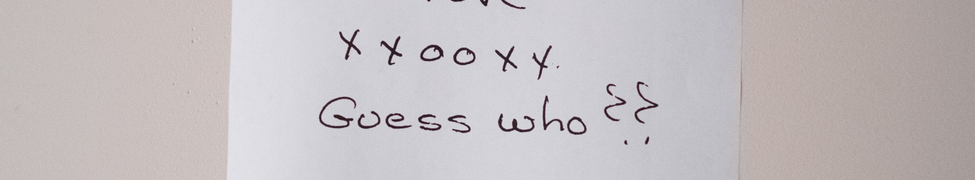 xxooxx.
Guess who ??